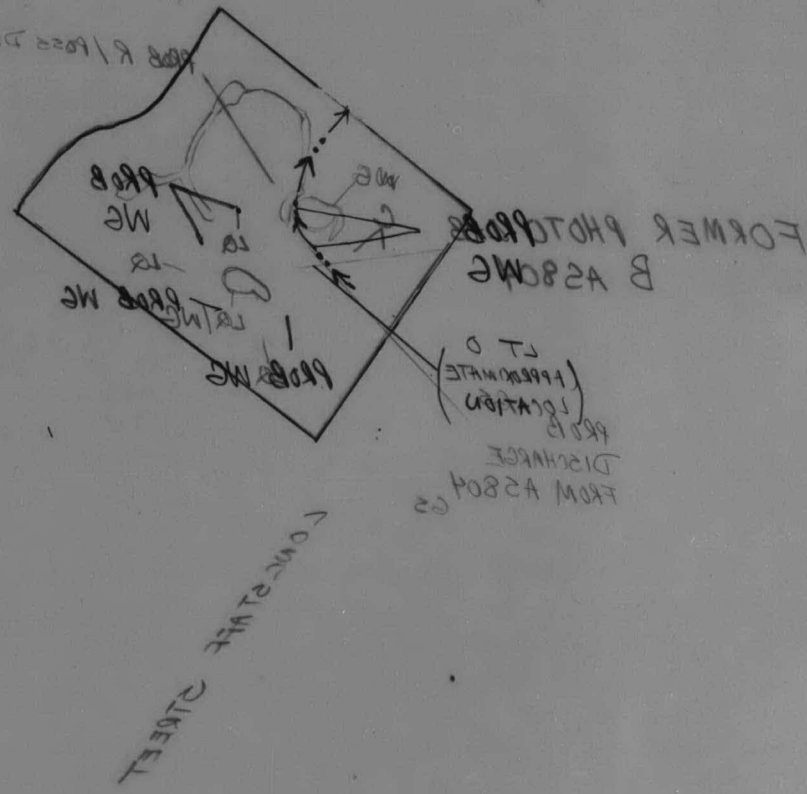 PROB R / POSS
PROB
WG
LQ
LQ
PROB WG
LQ / WG
PROB WG
WG
FORMER PHOTO
B A580
PROB
WG
LT O
(APPROXIMATE
LOCATION)
PROB
DISCHARGE
FROM A5804
GS
LONGSTAFF STREET